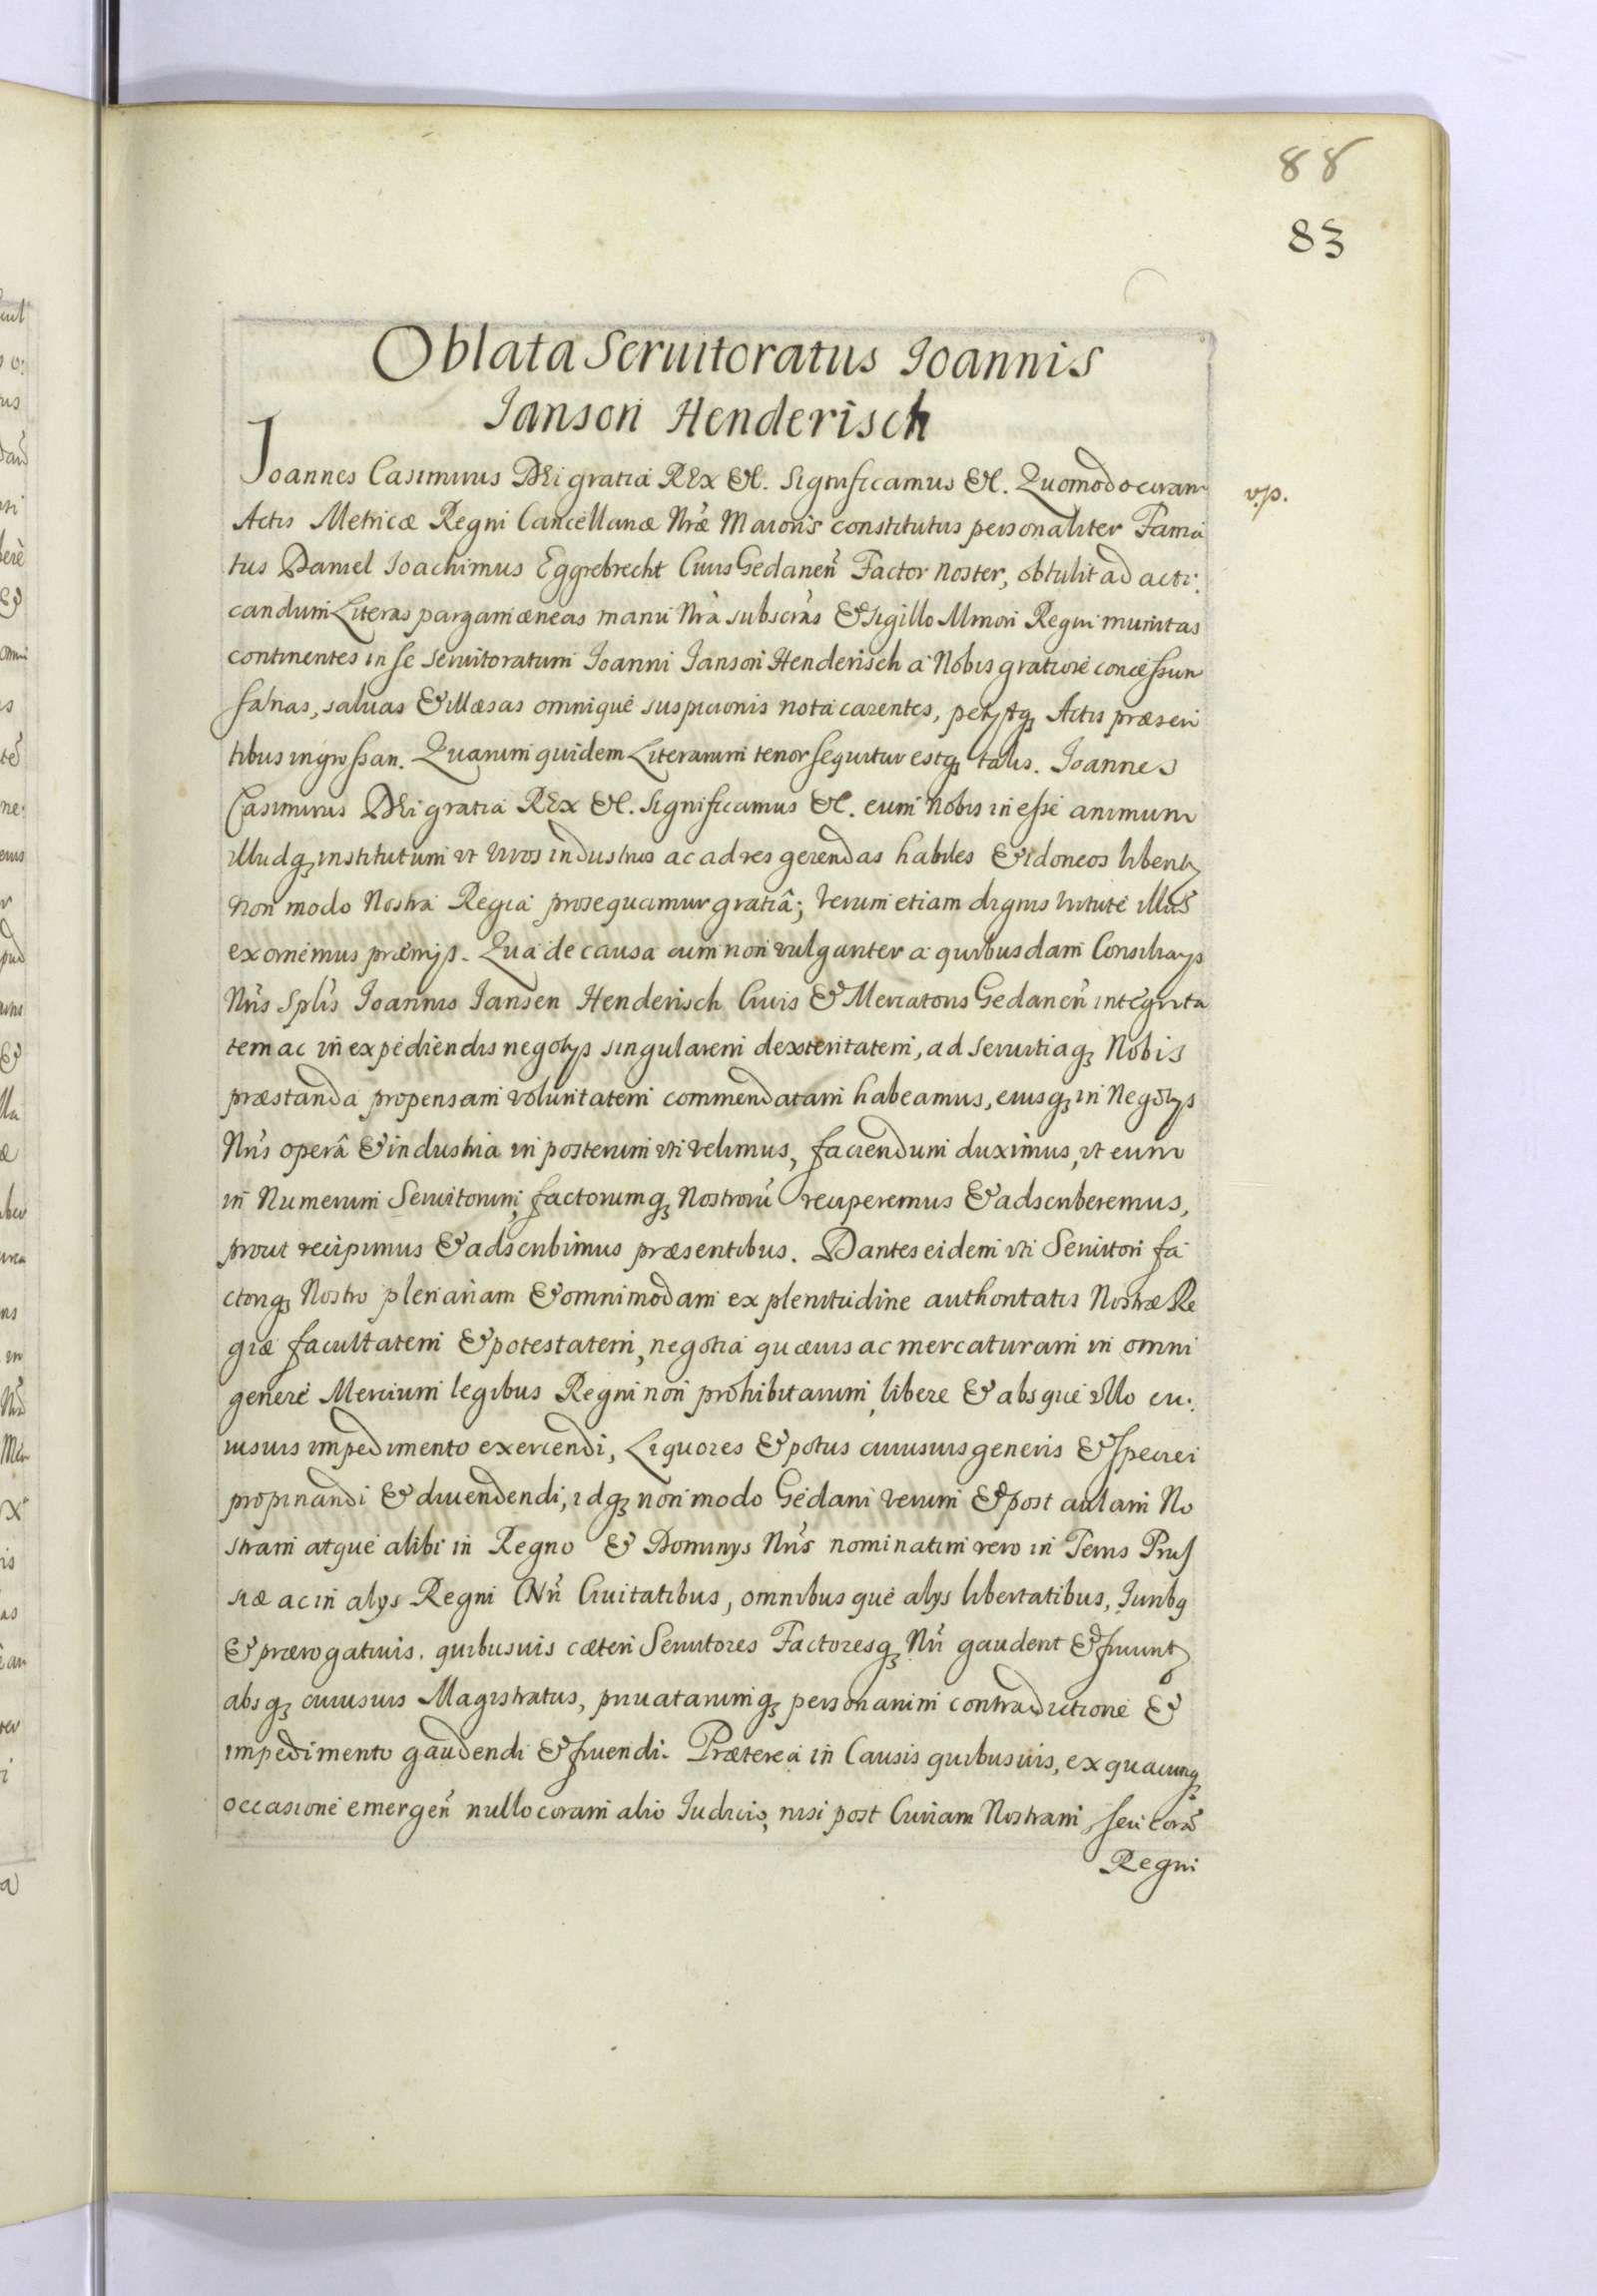 88
83
Oblata Seruitoratus Ioannis
Ianson Henderisch
Ioannes Casimirus DEi gratia REx &c. Significamus &c. Quomodo coram
v.p.
Actis Metricæ Regni Cancellariæ Nræ Maioris constitutus personaliter Fama
tus Daniel Ioachimus Eggebrecht Ciuis Gedanen̄ Factor Noster, obtulit ad acti:
candum Literas pargamæneas manu Nrà subscras & Sigillo Minori Regni munitas
continentes in se seruitoratum Ioanni Ianson Henderisch à Nobis gratiose concessum
sanas, saluas & illæsas omniquè suspicionis nota carentes, petijtq; Actis præsen
tibus ingrossari. Quarum quidem Literarum tenor sequitur estq; talis. Ioannes
Casimirus DEi gratia REx &c. Significamus &c. eum Nobis inesse animum
illudq; institutum vt Viros industrios ac ad res gerendas habiles & idoneos libentr
non modo Nostra Regia prosequamur gratiâ; Verum etiam dignis Virtute illas
exornemus præmijs. Qua de causa cum non vulgariter a quibusdam Consiliarijs
Nris Splis Ioannis Iansen Henderisch Ciuis & Mercatoris Gedanen̄ integrita
tem ac in expediendis negotijs singularem dexteritatem, ad seruitiaq; Nobis
præstanda propensam voluntatem commendatam habeamus, eiusq; in Negotijs
Nris operâ & industria in posterum vti velimus, faciendum duximus, vt eum
in Numerum Seruitorum, factorumq; Nostrorū reciperemus & adscriberemus,
prout recipimus & adscribimus præsentibus. Dantes eidem vti Seruitori fa
ctoriq; Nostro plenariam & omnimodam ex plenitudine authoritatis Nostræ Re
giæ facultatem & potestatem, negotia quæuis ac mercaturam in omni
genere Mercium legibus Regni non prohibitarum, libere & absque vllo cu:
iusuis impedimento exercendi, Liquores & potus cuiusuis generis & speciei
propinandi & diuendendi, idq; non modo Gedani verum & post aulam No
stram atque alibi in Regno & Dominijs Nris nominatim vero in Terris Prus
siæ ac in alijs Regni Nri Ciuitatibus, omnibusque alijs libertatibus, Iuribq
& prærogatiuis. quibusuis cæteri Seruitores Factoresq; Nri gaudent & fruunt
absq; cuiusuis Magistratus, priuatarumq; personarum contradictione &
impedimento gaudendi & fruendi. Præterea in Causis quibusuis, ex quacunq;
occasione emergen̄ nullo coram alio Iudicio, nisi post Curiam Nostram, seu corā
Regni